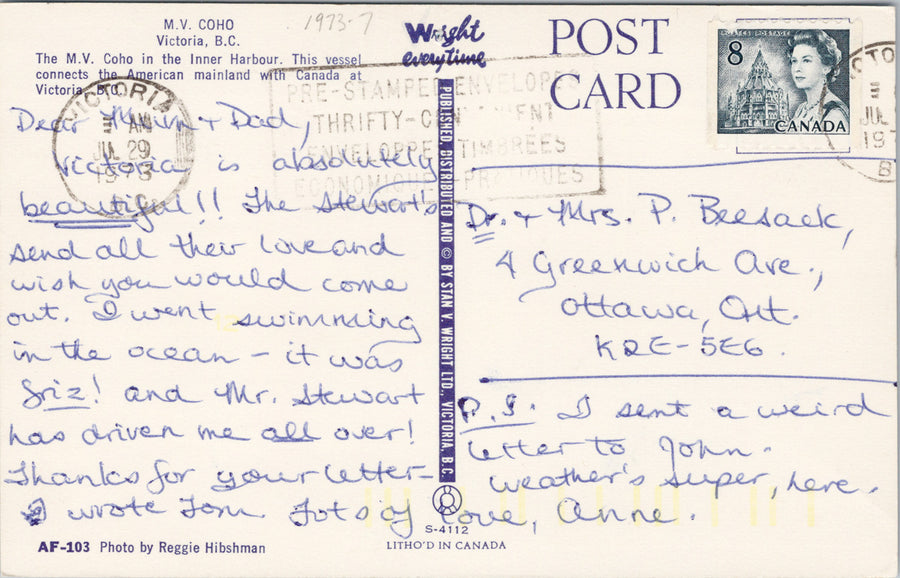 M.V. COHO
Victoria, B.C.
The M.V. Coho in the Inner Harbour. This vessel
connects the American mainland with Canada at
Victoria, B.C.
1973-7
Wright
everytime
POST
CARD
8
POSTES POSTAGE
CANADA
VICTORIA
AM
JUL 29
1973
B.C.
PRE-STAMPED ENVELOPES
THRIFTY-CONVENIENT
ENVELOPPES TIMBRÉES
ÉCONOMIQUES-PRATIQUES
Dear Mum + Dad,
Victoria is absolutely
beautiful!! The Stewart's
send all their love and
wish you would come
out. I went swimming
in the ocean - it was
friz! and Mr. Stewart
has driven me all over!
Thanks for your letter-
I wrote Tom. Lots of love, Anne.
PUBLISHED, DISTRIBUTED AND © BY STAN V. WRIGHT LTD., VICTORIA, B.C.
Dr. + Mrs. P. Beesack,
4 Greenwich Ave.,
Ottawa, Ont.
K2E-5E6.
P.S. I sent a weird
letter to John.
weather's super, here.
S-4112
LITHO'D IN CANADA
AF-103 Photo by Reggie Hibshman